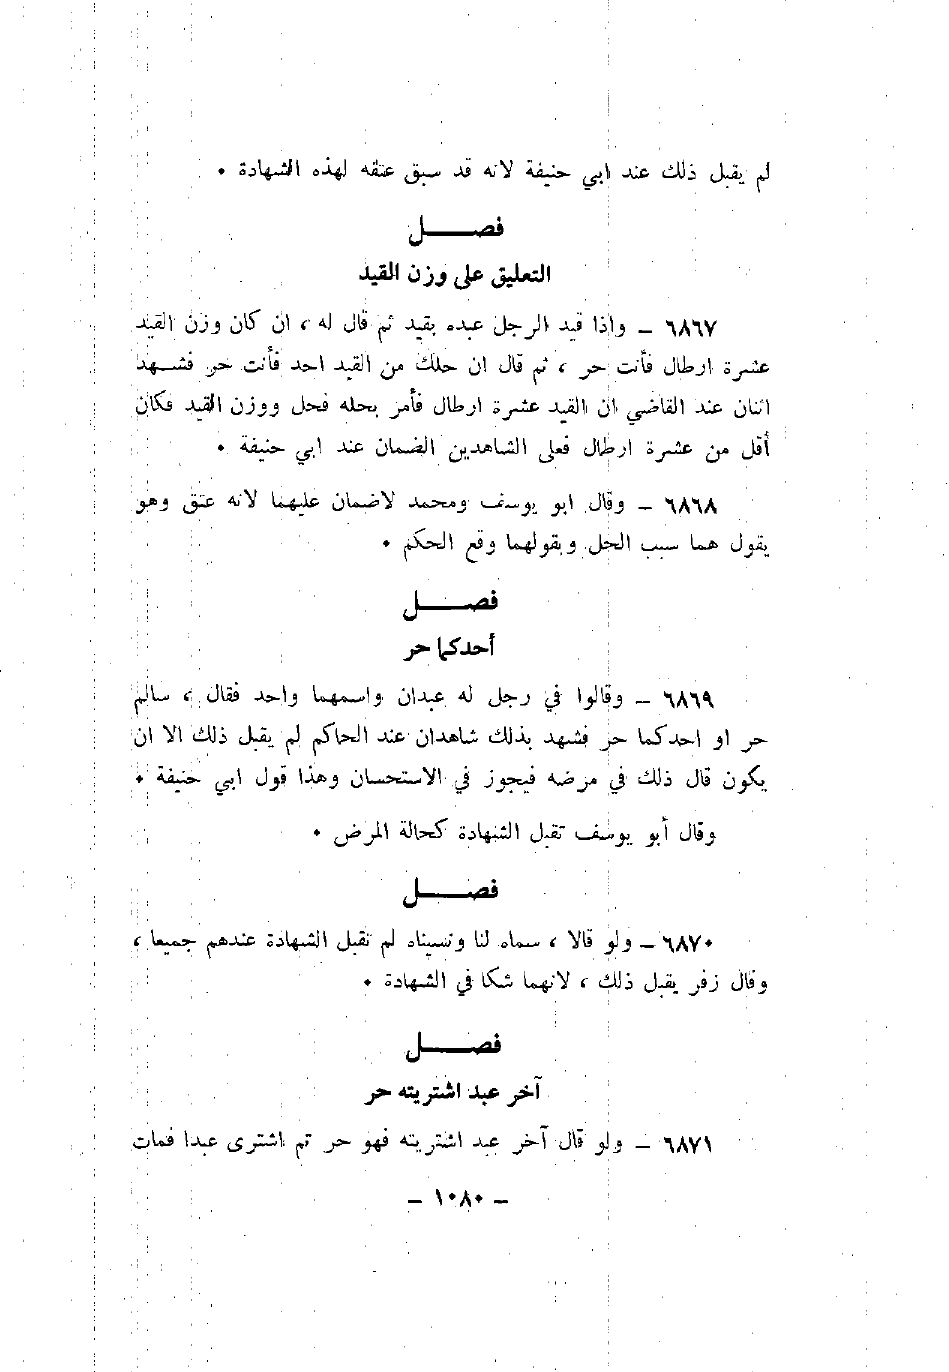 لم يقبل ذلك عند ابي حنيفة لانه قد سبق عتقه لهذه الشهادة •
فصــــل
التعليق على وزن القيد
٦٨٦٧ – واذا قيد الرجل عبده بقيد ثم قال له ، ان كان وزن القيد
عشرة ارطال فأنت حر ، ثم قال ان حلك من القيد احد فأنت حر فشــهد
اثنان عند القاضي ان القيد عشرة ارطال فأمر بحله فحل ووزن القيد فكان
أقل من عشرة ارطال فعلى الشاهدين الضمان عند ابي حنيفة •
٦٨٦٨ – وقال ابو يوسف ومحمد لاضمان عليهما لانه عتق وهو
يقول هما سبب الحل وبقولهما وقع الحكم •
فصــــل
أحدكما حر
٦٨٦٩ – وقالوا في رجل له عبدان واسمهما واحد فقال ، سالم
حر او احدكما حر فشهد بذلك شاهدان عند الحاكم لم يقبل ذلك الا ان
يكون قال ذلك في مرضه فيجوز في الاستحسان وهذا قول ابي حنيفة •
وقال أبو يوسف تقبل الشهادة كحالة المرض •
فصــــل
٦٨٧٠ – ولو قالا ، سماه لنا ونسيناه لم تقبل الشهادة عندهم جميعا ،
وقال زفر يقبل ذلك ، لانهما شكا في الشهادة •
فصــــل
آخر عبد اشتريته حر
٦٨٧١ – ولو قال آخر عبد اشتريته فهو حر ثم اشترى عبدا فمات
– ١٠٨٠ –